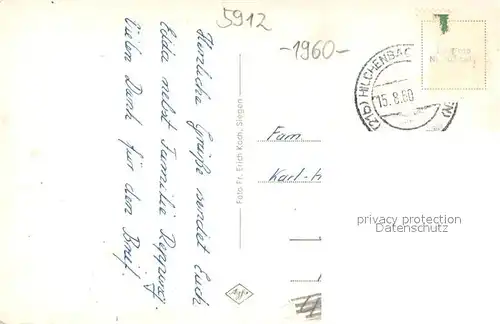 5912
-1960-
(21b) HILCHENBAC
15.8.60
Herzliche Grüße sendet Euch
Edda nebst Familie
Vielen Dank für den Brief.
Foto Fr. Erich Koch, Siegen
Fam
Karl-H
privacy protection
Datenschutz
Agfa